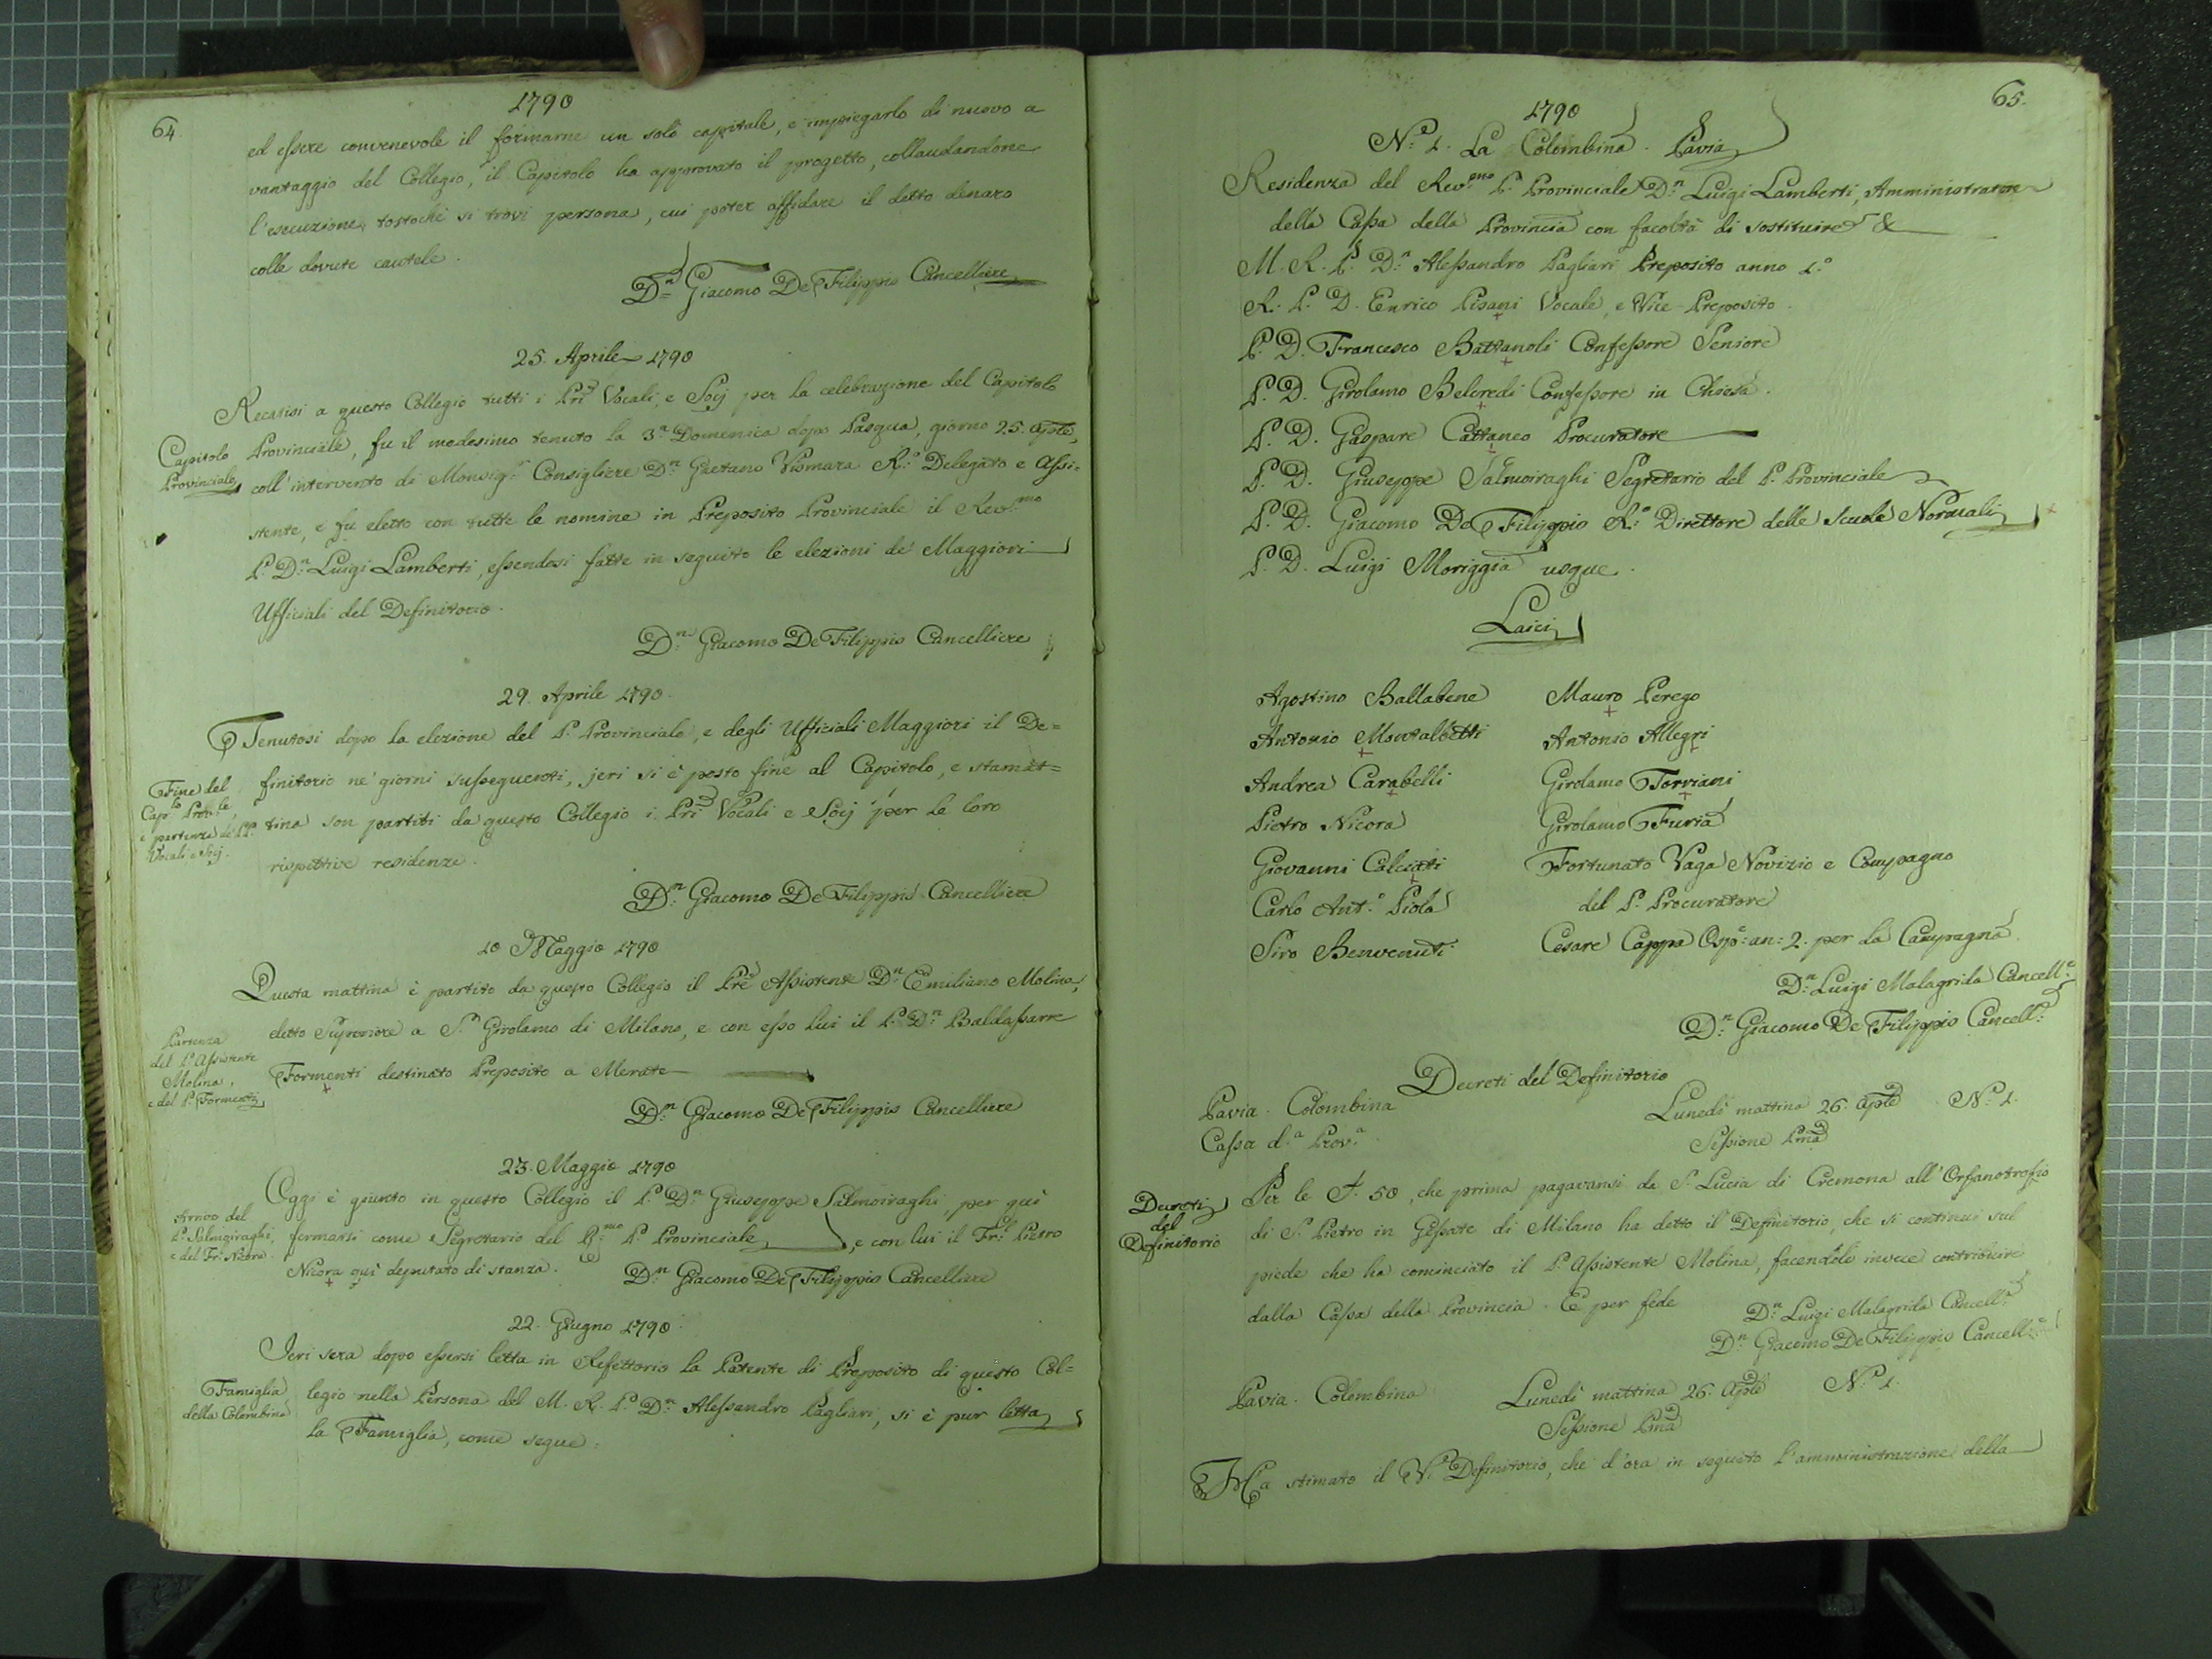 64.
1790
ed essere convenevole il formarne un solo capitale, e impiegarlo di nuovo a
vantaggio del Collegio, il Capitolo ha approvato il progetto, collaudandone
l'esecuzione, tostochè si trovi persona, cui poter affidare il detto denaro
colle dovute cautele.
D.n Giacomo De Filippis Cancelliere
25. Aprile 1790
Recatisi a questo Collegio tutti i Pri Vocali, e Socj per la celebrazione del Capitolo
Capitolo
Provinciale
Provinciale, fu il medesimo tenuto la 3.a Domenica dopo Pasqua, giorno 25. Aple,
coll'intervento di Monsig.r Consigliere D.n Gaetano Vismara R.o Delegato e Assi=
stente, e fu eletto con tutte le nomine in Preposito Provinciale il Rev.mo
P. D.n Luigi Lamberti, essendosi fatte in seguito le elezioni de' Maggiori
Ufficiali del Definitorio.
D.n Giacomo De Filippis Cancelliere
29. Aprile 1790.
Tenutosi dopo la elezione del P. Provinciale, e degli Ufficiali Maggiori il De=
Fine del
Cap.lo Prov.le
e partenza de' PP.
Vocali e Socj.
finitorio ne' giorni susseguenti, jeri si è posto fine al Capitolo, e stamat=
tina son partiti da questo Collegio i Pri Vocali e Socj per le loro
rispettive residenze.
D.n Giacomo De Filippis Cancelliere
10 Maggio 1790
Questa mattina è partito da questo Collegio il Pre Assistente D.n Emiliano Molina,
Partenza
del P. Assistente
Molina,
e del P. Formenti
detto Superiore a S.n Girolamo di Milano, e con esso lui il P. D.n Baldassarre
Formenti destinato Preposito a Merate
D.n Giacomo De Filippis Cancelliere
23. Maggio 1790
Oggi è giunto in questo Collegio il P. D.n Giuseppe Salmoiraghi, per quì
Arrivo del
P. Salmoiraghi,
e del Fr. Nicora.
fermarsi come Segretario del R.mo P. Provinciale, e con lui il Fr. Pietro
Nicora quì deputato di stanza.
D.n Giacomo De Filippis Cancelliere
22. Giugno 1790.
Jeri sera dopo essersi letta in Refettorio la Patente di Preposito di questo Col=
Famiglia
della Colombina
legio nella Persona del M. R. P. D.n Alessandro Pagliari, si è pur letta
la Famiglia, come segue:
65.
1790
N.o 1. La Colombina. Pavia
Residenza del Rev.mo P. Provinciale D.n Luigi Lamberti, Amministratore
della Cassa della Provincia con facoltà di sostituire &
M. R. P. D.n Alessandro Pagliari Preposito anno 1.o
R. P. D. Enrico Pisani Vocale, e Vice-Preposito.
P. D. Francesco Battanoli Confessore Seniore
P. D. Girolamo Belcredi Confessore in Chiesa.
P. D. Gaspare Cattaneo Procuratore
P. D. Giuseppe Salmoiraghi Segretario del P. Provinciale
P. D. Giacomo De Filippis R.o Direttore delle Scuole Normali
P. D. Luigi Moriggia usque.
Laici
Agostino Ballabene Mauro Perego
Antonio Montalbetti Antonio Allegri
Andrea Carabelli Girolamo Torriani
Pietro Nicora Girolamo Furia
Giovanni Calciati Fortunato Vaga Novizio e Compagno
Carlo Ant.o Piola del P. Procuratore
Siro Benvenuti Cesare Cappa Osp.e an: 2. per la Campagna.
D.n Luigi Malagrida Cancell.e
D.n Giacomo De Filippis Cancell.e
Decreti del Definitorio
Pavia. Colombina Lunedì mattina 26. Aple N.o 1.
Cassa d.a Prov.a Sessione Pma
Decreti
del
Definitorio
Per le £. 50, che prima pagavansi da S. Lucia di Cremona all'Orfanotrofio
di S. Pietro in Gessate di Milano ha detto il Definitorio, che si continui sul
piede che ha cominciato il P. Assistente Molina, facendole invece contribuire
dalla Cassa della Provincia. E per fede
D.n Luigi Malagrida Cancell.e
D.n Giacomo De Filippis Cancell.e
Pavia. Colombina Lunedì mattina 26. Aple N.o 1.
Sessione Pma
Ha stimato il V. Definitorio, che d'ora in seguito l'amministrazione della